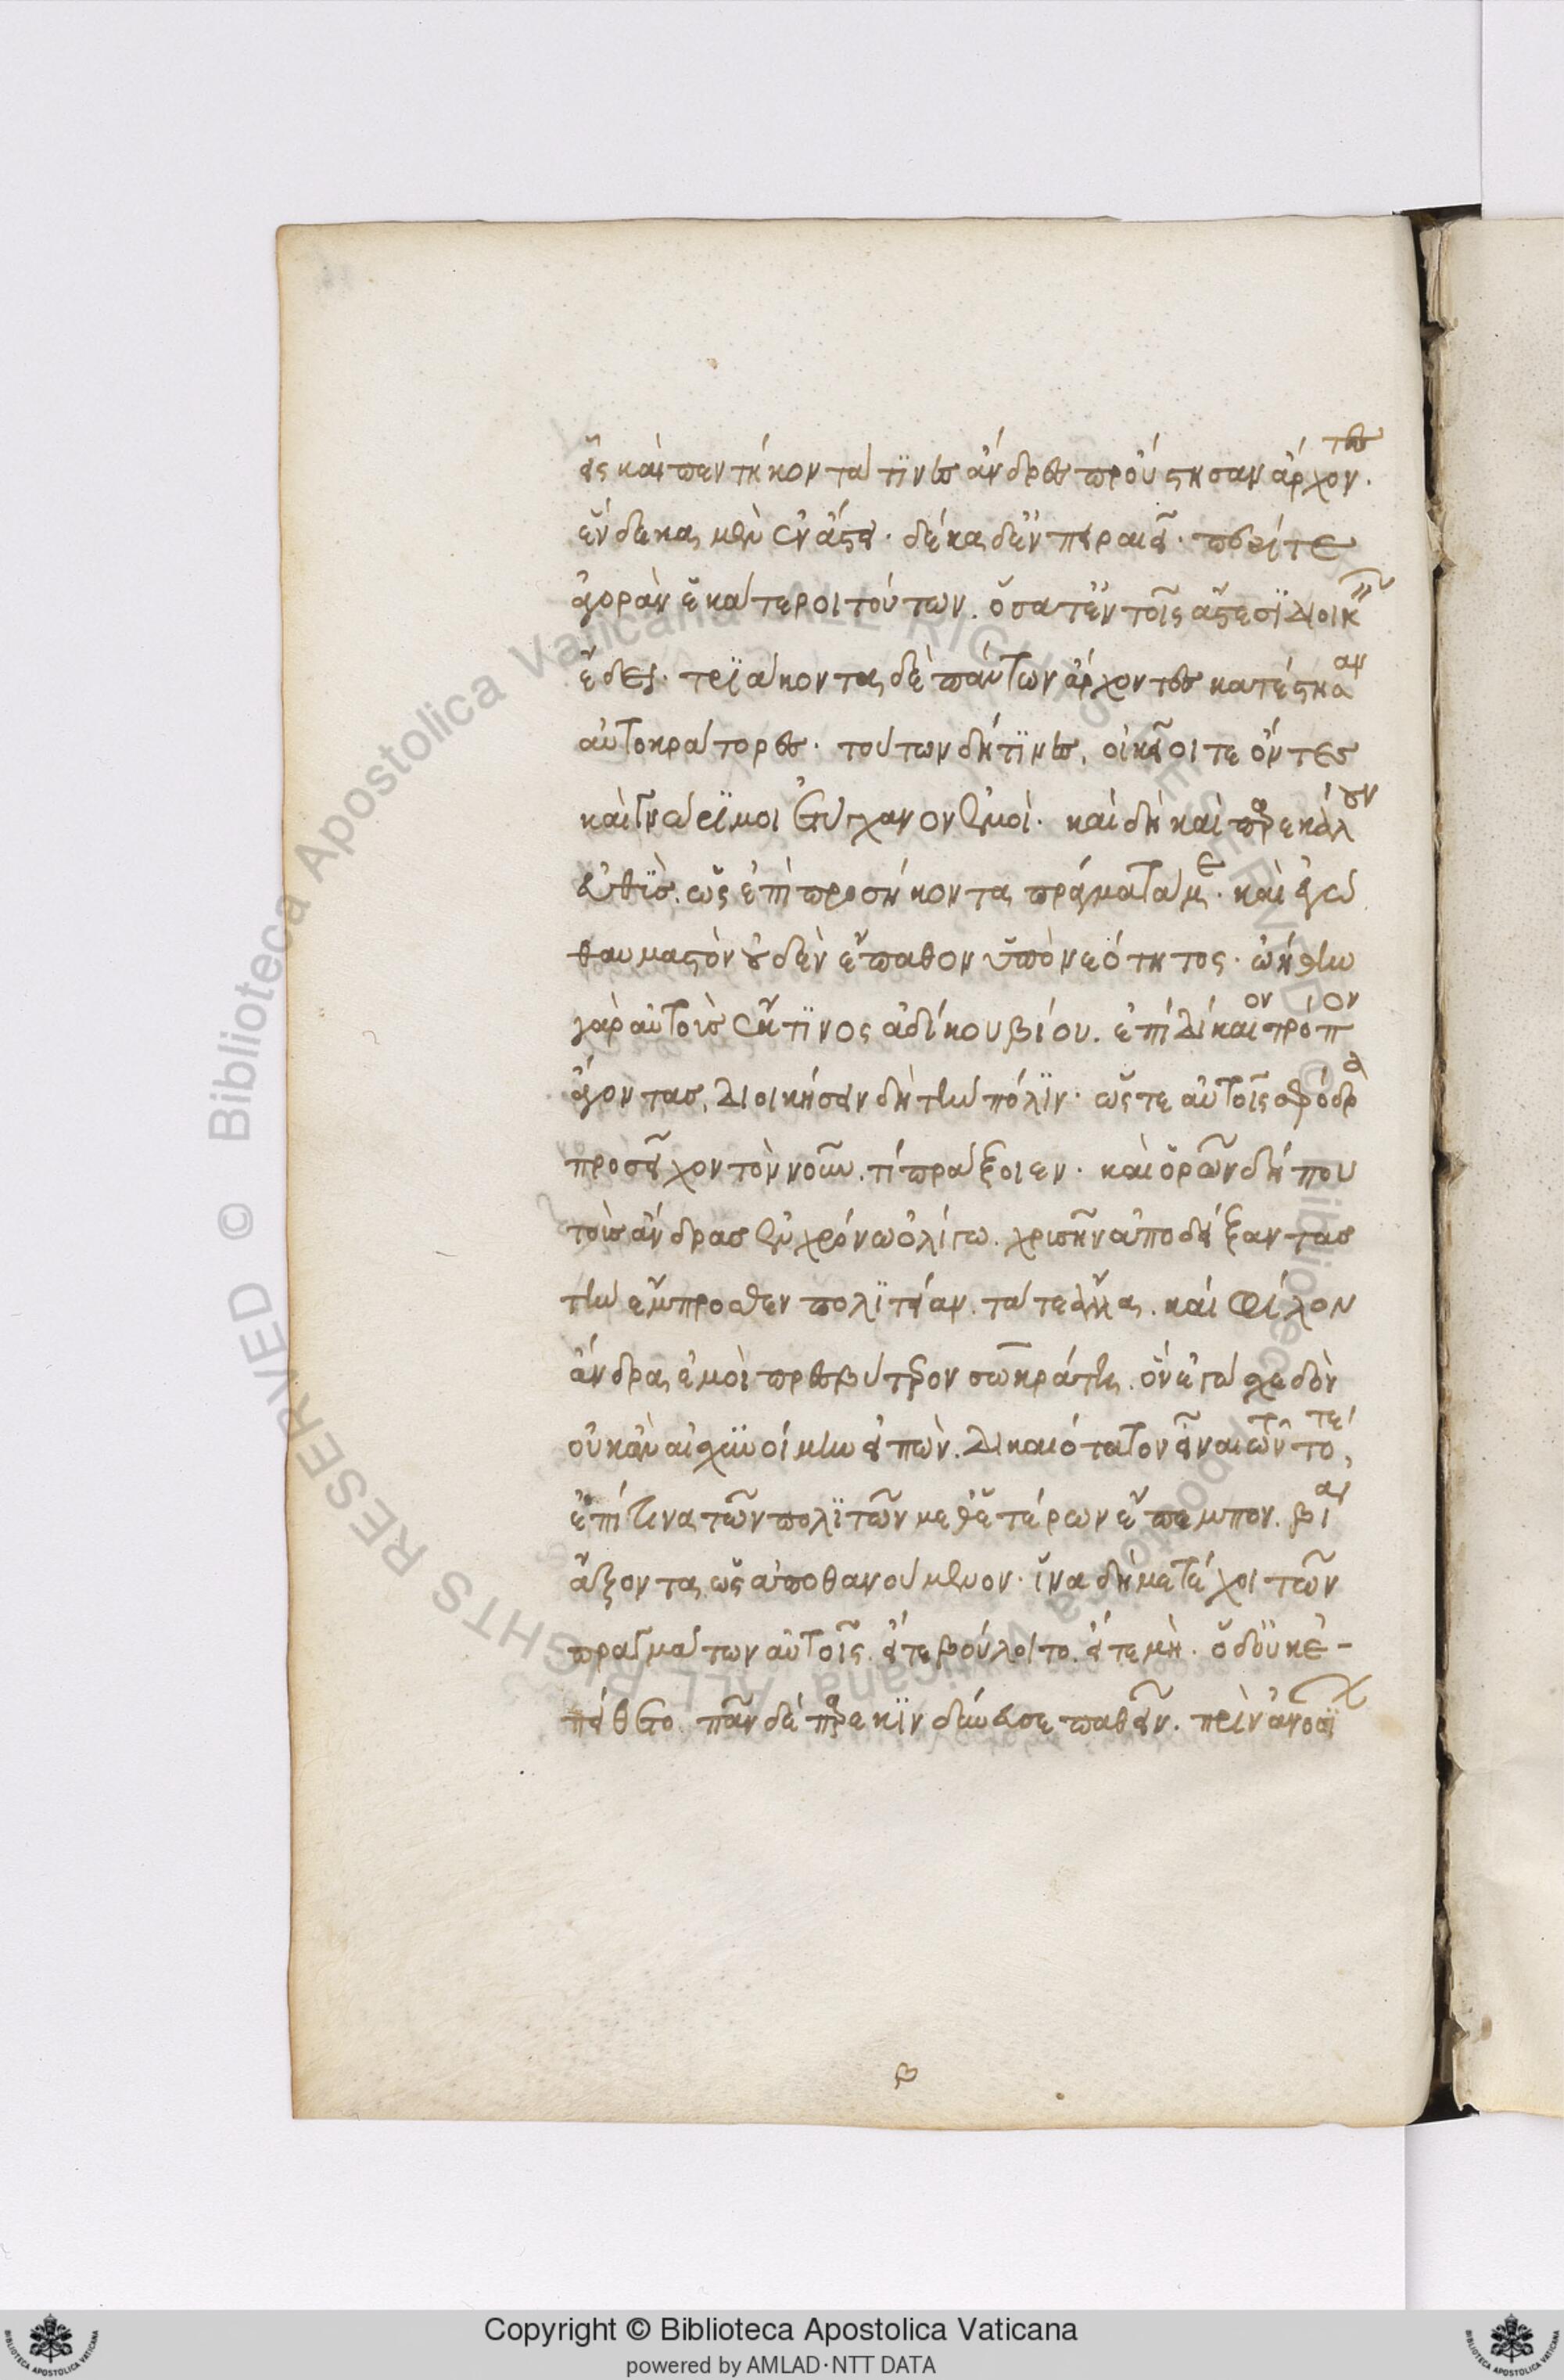 εἷς καὶ πεντήκοντά τινες ἄνδρες προύστησαν ἄρχοντες.
ἕνδεκα μὲν ἐν ἄστει. δέκα δ' ἐν πειραιεῖ. περί τε
ἀγορὰν ἑκάτεροι τούτων. ὅσα τ' ἐν τοῖς ἄστεσι διοικεῖν
ἔδει. τριάκοντα δὲ πάντων ἄρχοντες κατέστησαν
αὐτοκράτορες. τούτων δή τινες, οἰκεῖοί τε ὄντες
καὶ γνώριμοι ἐτύγχανον ἐμοί. καὶ δὴ καὶ παρεκάλουν
εὐθὺς. ὡς ἐπὶ προσήκοντα πράγματά με. καὶ ἐγὼ
θαυμαστὸν οὐδὲν ἔπαθον ὑπὸ νεότητος. ᾠήθην
γὰρ αὐτοὺς ἔκ τινος ἀδίκου βίου. ἐπὶ δίκαιον τρόπον
ἄγοντας, διοικήσειν δὴ τὴν πόλιν. ὥστε αὐτοῖς σφόδρα
προσεῖχον τὸν νοῦν. τί πράξοιεν. καὶ ὁρῶν δή που
τοὺς ἄνδρας ἐν χρόνω ὀλίγω. χρυσῆν ἀποδείξαντας
τὴν ἔμπροσθεν πολιτείαν. τά τε ἄλλα. καὶ φίλον
ἄνδρα ἐμοὶ πρεσβύτερον σωκράτη. ὃν ἐγὼ σχεδὸν
οὐκ ἂν αἰσχυνοίμην εἰπὼν. δικαιότατον εἶναι τῶν τότε,
ἐπί τινα τῶν πολιτῶν μεθ' ἑτέρων ἔπεμπον. βίᾳ
ἄξοντα ὡς ἀποθανούμενον. ἵνα δὴ μετέχοι τῶν
πραγμάτων αὐτοῖς. εἴτε βούλοιτο. εἴτε μὴ. ὁ δ' οὐκ ἐ-
πείθετο. πᾶν δὲ παρεκινδύνευσε παθεῖν. πρὶν ἀνοσί
β
Copyright © Biblioteca Apostolica Vaticana
powered by AMLAD·NTT DATA